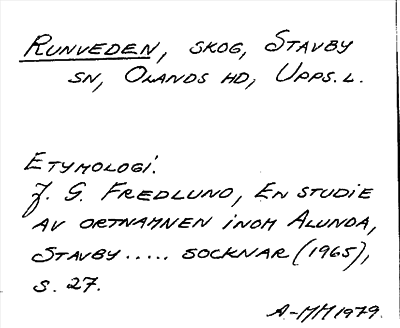 RUNVEDEN, SKOG, STAVBY
SN, OLANDS HD, UPPS. L.
ETYMOLOGI:
J. G. FREDLUND, EN STUDIE
AV ORTNAMNEN INOM ALUNDA,
STAVBY ..... SOCKNAR (1965),
S. 27.
A-MM 1979.